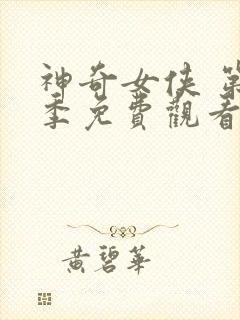 神奇女俠 第
季免費觀看
黃碧華